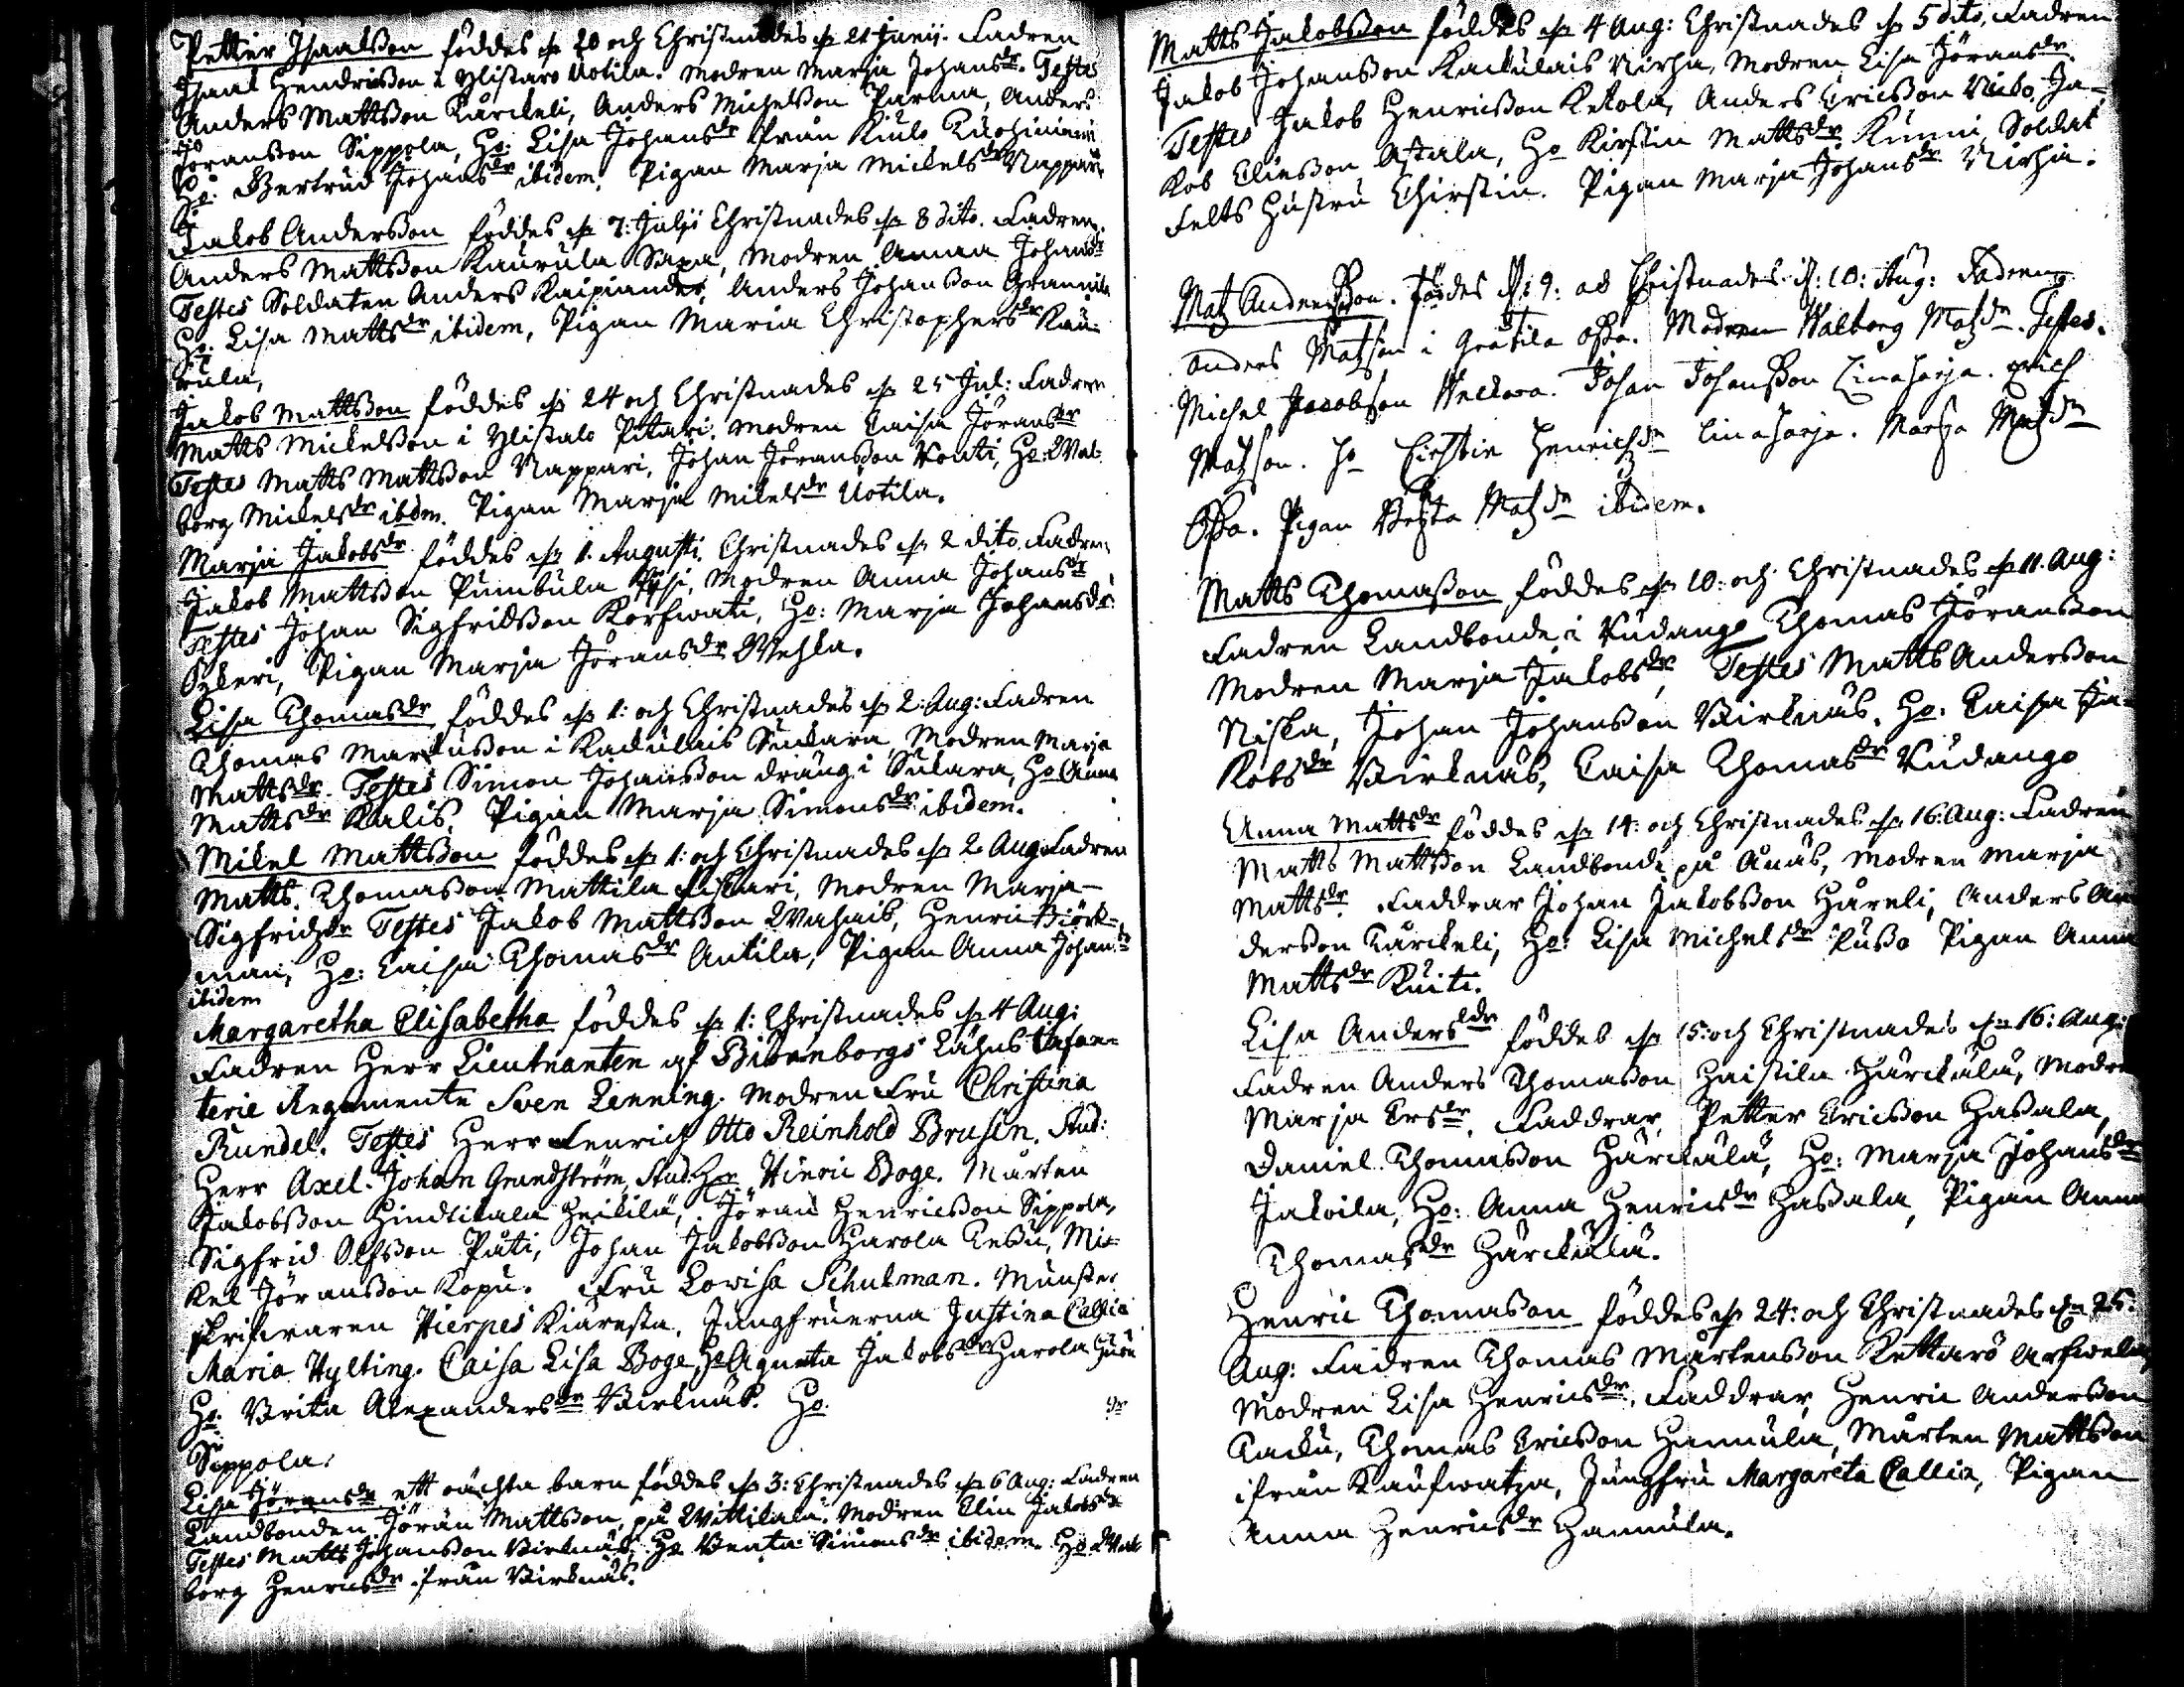 Petter Isaaksson föddes d. 20 och Christnades d. 21 Junii. Fadren
Isaak Hendriksson i Ylistaro Uotila. Modren Marja Johansdr. Testes
Anders Mattsson Kärckeli, Anders Michelsson Parma, Anders
Jöransson Sippola, Ho: Lisa Johansdr från Kiulo
Ho: Gertrud Johansdr ibidem, Pigan Marja Mickelsdr Nappari
Jakob Andersson föddes d. 7: Julii Christnades d. 8 dito. Fadren
Anders Mattsson Kaurula Papa, Modren Anna Johansdr
Testes Soldaten Anders Kaipiander, Anders Johansson Grannila
Ho: Lisa Mattsdr ibidem, Pigan Maria Christophersdr Kau-
rula,
Jakob Mattsson föddes d. 24 och Christnades d. 25 Jul: Fadren
Matts Mickelsson i Ylistalo Pitari. Modren Caisa Jöransdr
Testes Matts Mattsson Nappari, Johan Jöransson Konti, Ho: Wal-
borg Mickelsdr ibdm. Pigan Marja Mikelsdr Uotila.
Marja Jakobsdr föddes d. 1. Augusti. Christnades d. 2 dito. Fadren
Jakob Mattsson Pumbula Modren Anna Johansdr
Testes Johan Sigfridsson Korfwati, Ho: Marja Johansdr
Pigan Marja Jöransdr Wehka.
Lisa Thomasdr föddes d. 1: och Christnades d. 2: Aug: Fadren
Thomas Markusson i Kackulais Sukara, Modren Marja
Mattsdr. Testes Simon Johansson dräng i Sukara, Ho Anna
Mattsdr Kalis, Pigan Marja Simonsdr ibidem.
Mikel Mattsson föddes d. 1: och Christnades d. 2 Aug: Fadren
Matts Thomasson Mattila Fiskari, Modren Marja
Sigfridsdr Testes Jakob Mattsson Wahais, Henric Björk-
man, Ho: Caisa Thomasdr Antila, Pigan Anna Johansdr
ibidem
Margaretha Elisabetha föddes d. 1: Christnades d. 4 Aug:
Fadren Herr Lieutnanten af Biörneborgs Lähns Infan-
terie Regemente Sven Lenning. Modren Fru Christina
Rundel. Testes Herr Fenrich Otto Reinhold Brusin. Stud:
Herr Axel Johan Grundström, Stud. Hr. Hinric Boge. Mårten
Jakobsson Hindickala Heikilä, Jöran Henricsson Sippola,
Sigfrid Olfsson Päti, Johan Jakobsson Harola Kesu, Mi-
kel Jöransson Kopu. Fru Lovisa Schulman. Munster
skrifwaren Hierpes Kiäresta, Jungfruerna Justina Callia
Maria Hylting. Caisa Lisa Boge, Ho Agneta Jakobsdr Harola
Ho: Brita Alexandersdr Birknäs. Ho. dr
Sippola.
Lisa Jöransdr ett oächta barn föddes d. 3: Christnades d. 6 Aug: Fadren
Landbonden Jöran Mattsson på Wittikala. Modren Elin Jakobsdr
Testes Matts Johansson Birknäs, Ho Beata Simonsdr ibidem. Ho Wal-
borg Henricsdr från Birknäs.
Matts Jakobsson föddes d. 4 Aug: Christnades d. 5 dito, Fadren
Jakob Johansson Kackulais Nirhu, Modren Lisa Jöransdr.
Testes Jakob Henricsson Kekola, Anders Ericsson Ja-
kob Eliesson Astala, Ho Kirstin Mattsdr Kunni, Soldat
Felts Hustru Chirstin. Pigan Marja Johansdr Nirhu.
Matz Andersson. föddes d: 9: och Christnades d: 10: Aug: Fadren
Anders Matzson i Gratila Modren Walborg Matzdr. Testes.
Michel Jacobson Johan Johansson Linaharja. Erich
Matzson. Ho Cirstin Henrichsdr Linaharja. Marja Matzdr
Pigan Beata Matzdr ibidem.
Matts Thomasson föddes d. 10: och Christnades d. 11. Aug:
Fadren Landbonde i Vudango Thomas Jöransson
Modren Marja Jakobsdr, Testes Matts Andersson
Niska, Johan Johansson Birknäs, Ho: Caisa Ja-
kobsdr Birknäs, Caisa Thomasdr Vudango
Anna Mattsdr föddes d. 14: och Christnades d. 16: Aug: Fadren
Matts Mattsson Landbonde på Anäs, Modren Marja
Mattsdr. Faddrar Johan Jakobsson Häreli, Anders An-
dersson Kärckeli, Ho: Lisa Michelsdr Pusa Pigan Anna
Mattsdr Kuiti.
Lisa Andersdr föddes d. 15: och Christnades d. 16: Aug:
Fadren Anders Thomasson Haistila Härckälä, Modren
Marja Ersdr. Faddrar, Petter Ericsson Hassala,
Daniel Thomasson Härckälä, Ho: Marja Johansdr
Jakoila, Ho: Anna Henricsdr Hassala, Pigan Anna
Thomasdr Härckälä.
Henric Thomasson föddes d. 24: och Christnades d. 25:
Aug: Fadren Thomas Mårtensson Kettarö Arfwela,
Modren Lisa Henricsdr. Faddrar, Henric Andersson
Kacku, Thomas Ericsson Hannula, Mårten Mattsson
ifrån Kaufwatza, Jungfru Margareta Callia, Pigan
Anna Henricsdr Hannula.